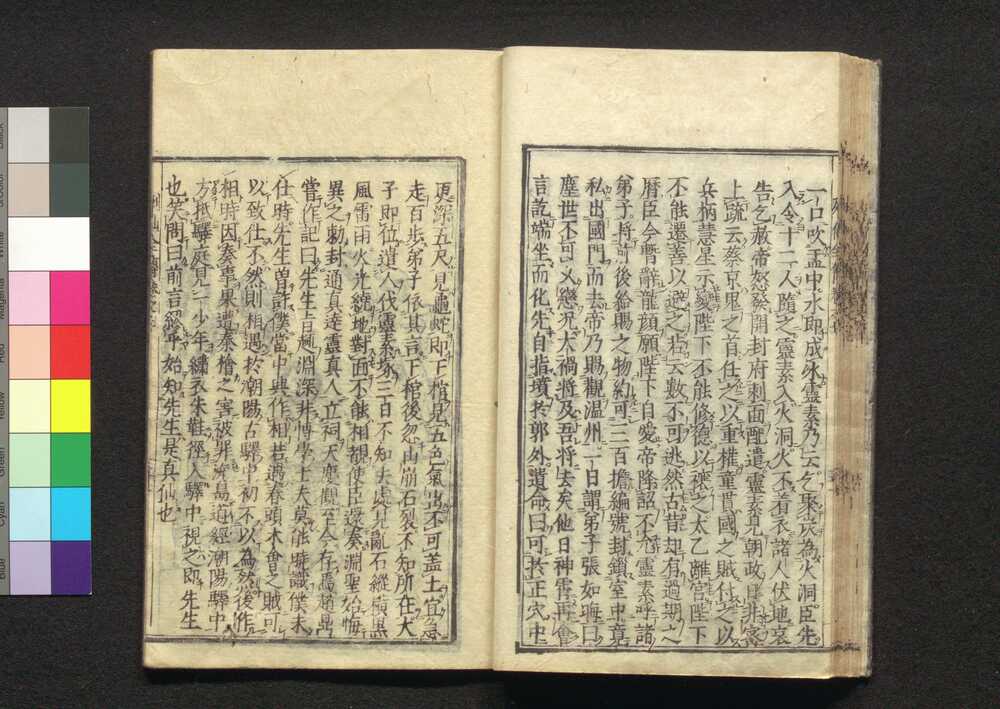 一口吹盂中水即成氷靈素乃云乞聚炭為火洞臣先
入令十二人隨之靈素入火洞火不着衣諸人伏地哀
告乞赦帝怒發開封府刺面配遣靈素見朝政日非密
上疏云蔡京鬼之首任之以重權童貫國之賊付之以
兵柄慧星示變陛下不能修德以禳之太乙離宮陛下
不能遷善以避之
曆臣今暫辭龍顏願陛下自愛帝降詔不允靈素呼諸
弟子將前後給賜之物約可三百擔編號封鎖室中竟
私出國門而去帝乃賜觀温州一日謂弟子張如晦曰
塵世不可久戀況大禍將及吾將去矣他日神霄再會
言訖端坐而化先自指墳於郭外遺命曰可於正穴中
更深五尺見龜蛇即下棺見五色氣出不可盖土宜急
走百步弟子依其言下棺後忽山崩石裂不知所在太
子即位遣人伐靈素塚三日不知去處見亂石縱橫黒
風雷雨火光繞地對面不能相覩使臣逯奏淵聖始悔
異之勅封通真達靈真人立祠天慶觀至今存焉趙鼎
嘗作記曰先生言趣淵深非博學士夫莫能曉識僕未
仕時先生曽許僕當中興作相若遇春頭木會之賊可
以致仕不然則相遇於潮陽古驛中初不以為然後作
相時因奏事果遭秦檜之害被罪海島道經潮陽驛中
方抵驛庭見一少年繡衣朱鞋徑入驛中視之即先生
也笑問曰前言繆乎始知先生是真仙也